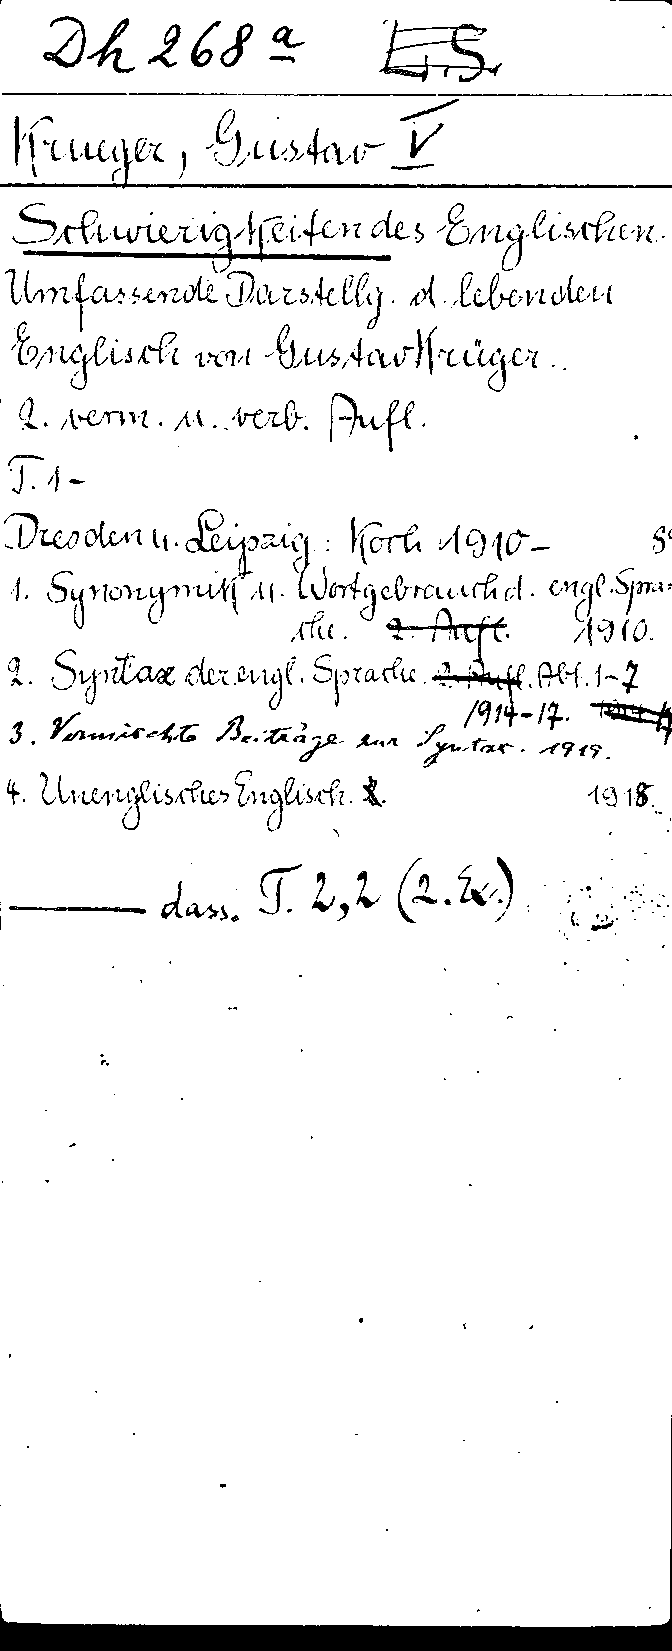 Dh 268 a E.S.
Krueger, Gustav V
Schwierigkeiten des Englischen.
Umfassende Darstellg. d. lebenden
Englisch von Gustav Krüger..
2. verm. u. verb. Aufl.
T. 1-
Dresden u. Leipzig: Koch 1910- 8°
1. Synonymik u. Wortgebrauch d. engl. Spra-
che. 2. Aufl. 1910.
2. Syntax der engl. Sprache. 2. Aufl. Abt. 1-7
1914-17.
3. Vermischte Beiträge zur Syntax. 1919.
4. Unenglisches Englisch. 1918.
dass. T. 2,2 (2. Ex.)